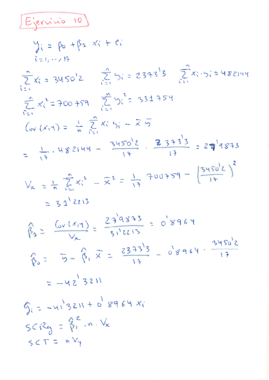 Ejercicio 10
yi = β0 + β1 xi + ei
i=1,...,17
∑xi = 3450'2 ∑yi = 2373'3 ∑xi·yi = 482144
∑xi² = 700759 ∑yi² = 331754
Cov(x,y) = 1/n ∑xi yi - x̄ ȳ
= 1/17 · 482144 - 3450'2/17 · 2373'3/17 = 27'9873
Vx = 1/n ∑xi² - x̄² = 1/17 700759 - (3450'2/17)²
= 31'2213
β̂1 = Cov(x,y)/Vx = 27'9873/31'2213 = 0'8964
β̂0 = ȳ - β̂1 x̄ = 2373'3/17 - 0'8964 · 3450'2/17
= -42'3211
ŷi = -41'3211 + 0'8964 xi
SCReg = β̂1² · n · Vx
SCT = nVy